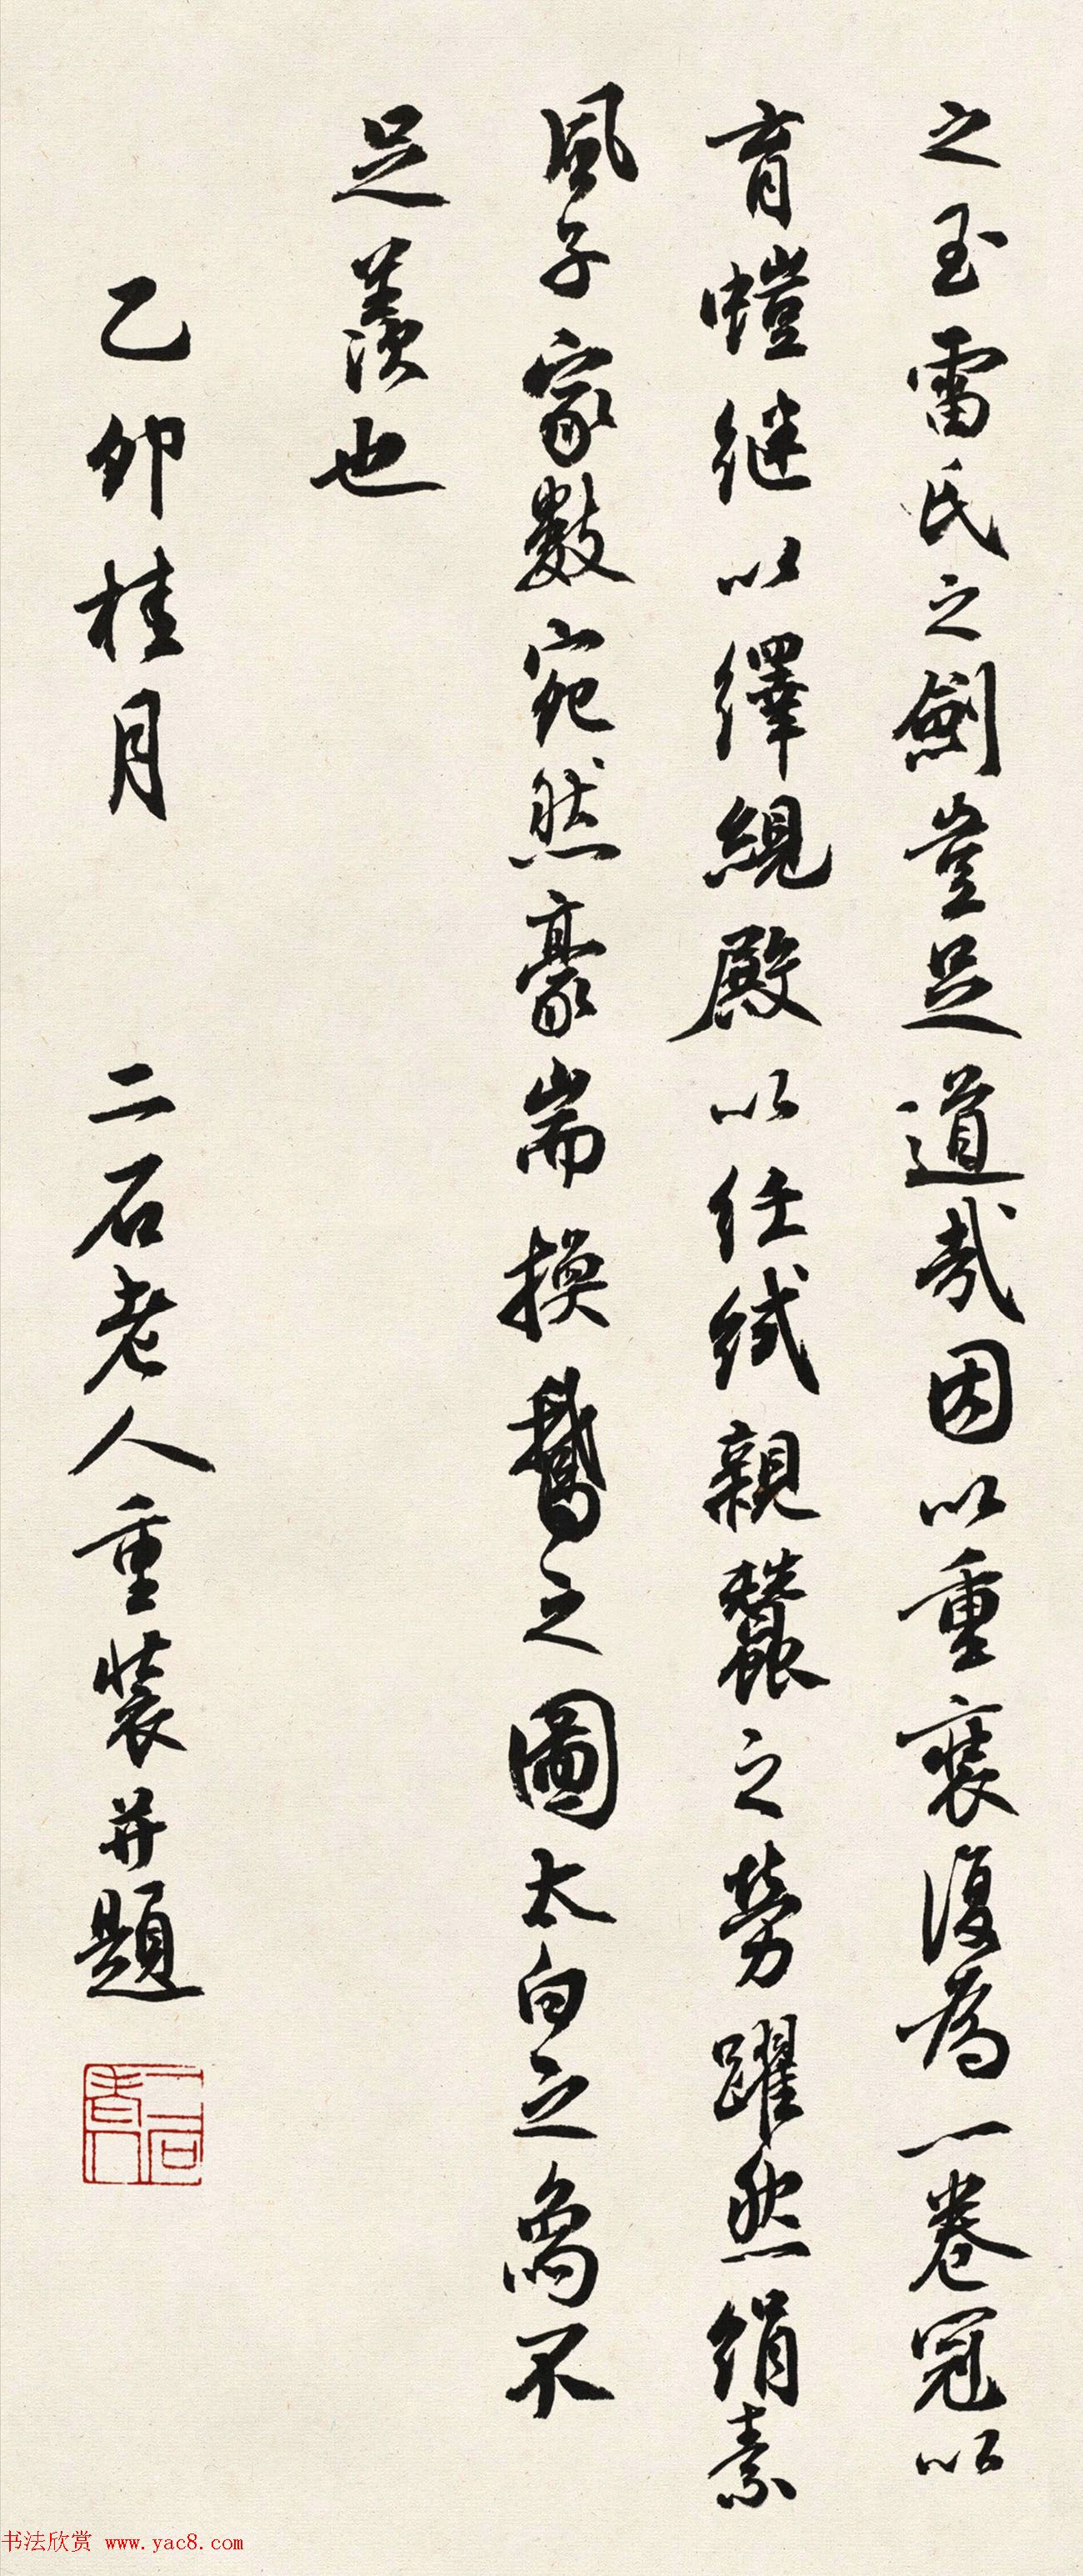 之玉雷氏之劍豈足道哉因以重裝復為一卷冠以
育螘继以繹繭殿以任紝親蠶之勞躍然絹素
風子家數宛然豪耑換鵞之圖太白之烏不
足羨也
乙卯桂月 二石老人重裝并題
二石老人
书法欣赏 www.yac8.com